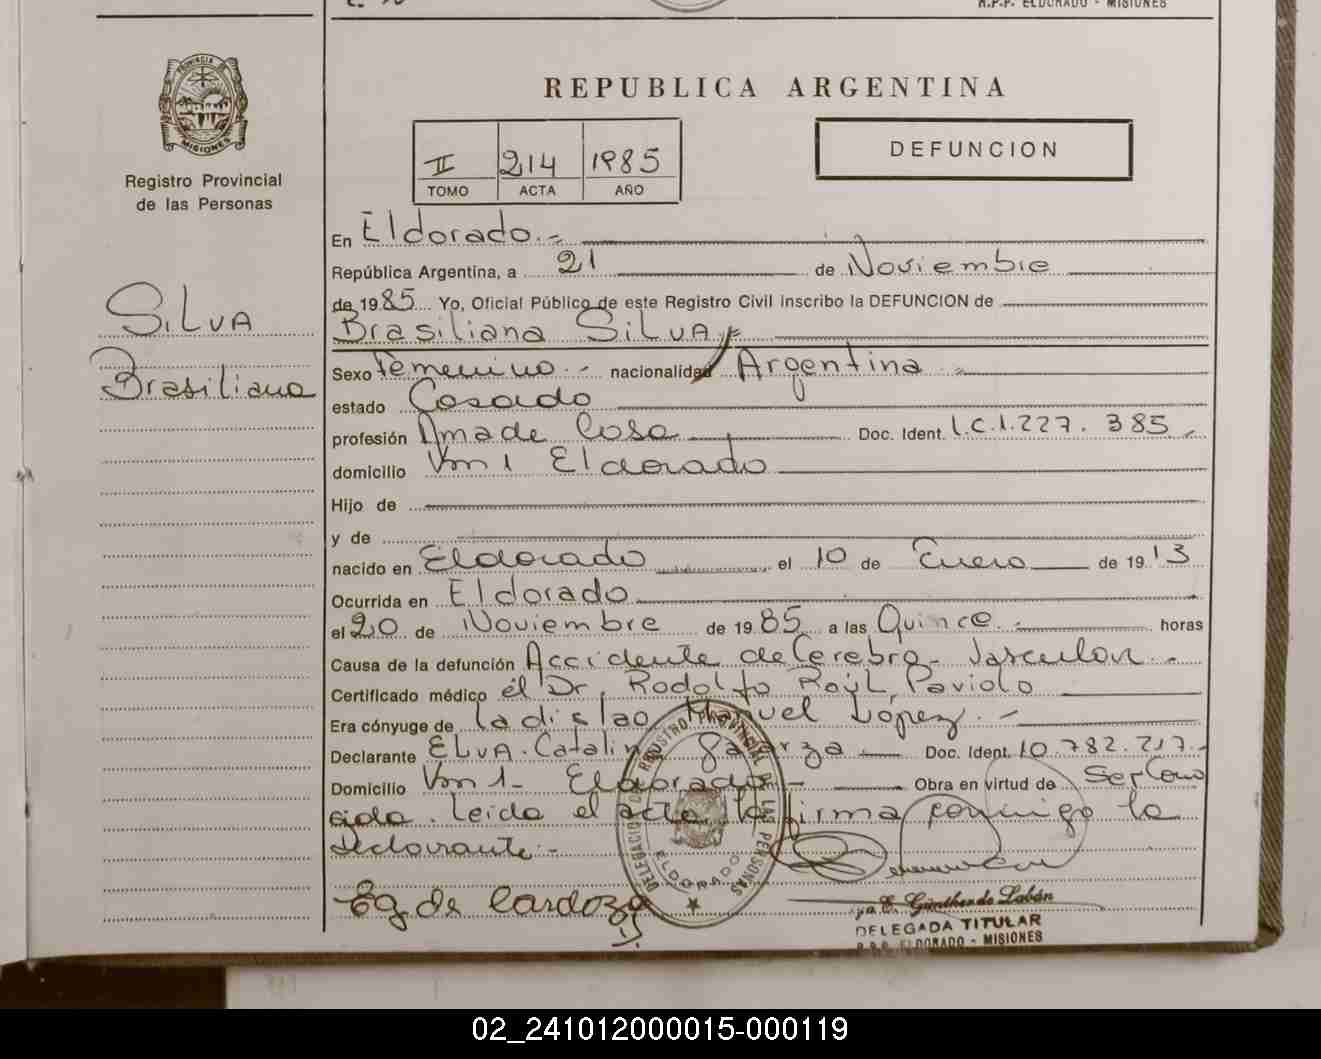 R.P.P. ELDORADO - MISIONES
PROVINCIA DE
MISIONES
Registro Provincial
de las Personas
SILVA
Brasiliana
REPUBLICA ARGENTINA
II 214 1985
TOMO ACTA AÑO
DEFUNCION
En Eldorado.-
República Argentina, a 21 de Noviembre
de 1985 Yo, Oficial Público de este Registro Civil inscribo la DEFUNCION de
Brasiliana SILVA
Sexo Femenino.- nacionalidad Argentina
estado Casado
profesión Ama de Casa Doc. Ident. L.C.1.227.385
domicilio Km 1 Eldorado
Hijo de
y de
nacido en Eldorado el 10 de Enero de 1913
Ocurrida en Eldorado
el 20 de Noviembre de 1985 a las Quince.- horas
Causa de la defunción Accidente de Cerebro-Vasculor.-
Certificado médico el Dr. Rodolfo Raúl Paviolo
Era cónyuge de Ladislao Manuel López.-
Declarante ELVA.Catalina Doc. Ident. 10.782.717.-
Domicilio Km 1- Eldorado- Obra en virtud de Ser Cono
cida. Leida el acta, la firma conmigo la
Declarante.-
Eg de Cardozo
DELEGACION DEL REGISTRO PROVINCIAL DE LAS PERSONAS
ELDORADO
E. Günther de Labán
DELEGADA TITULAR
R.P.P. ELDORADO - MISIONES
02_241012000015-000119